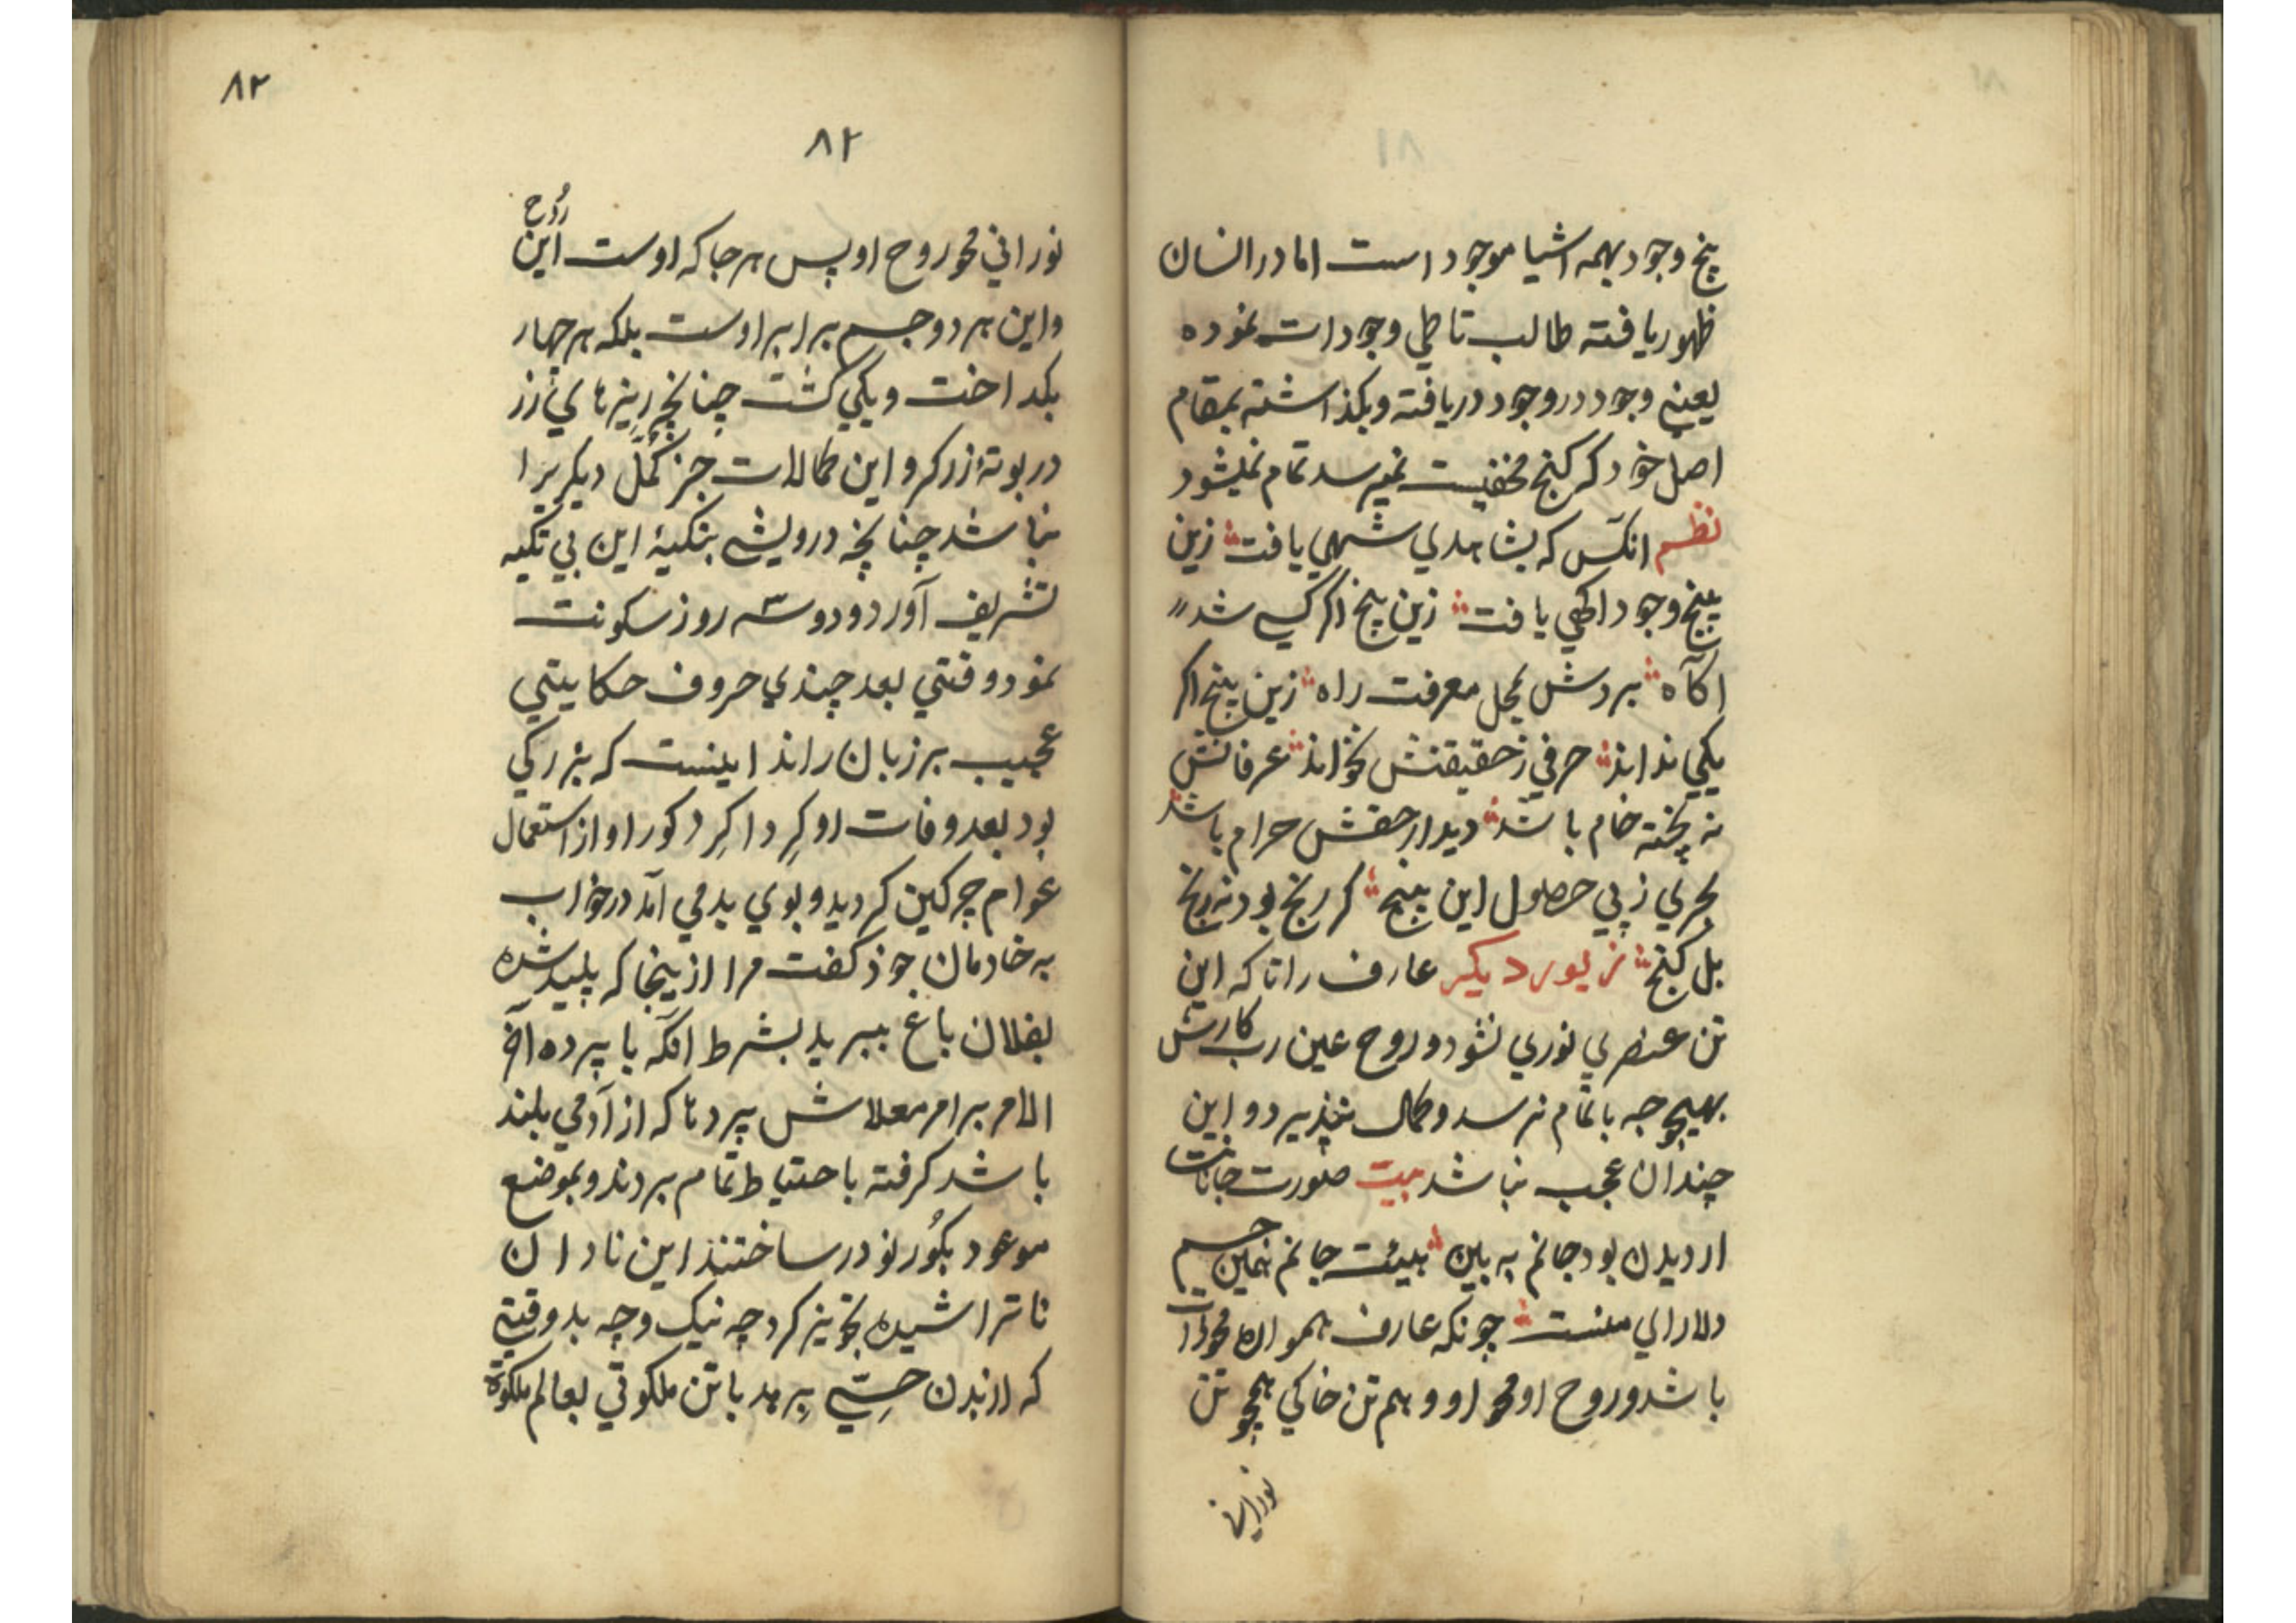 پنج وجود بهمه اشیا موجود است اما در انسان
ظهور یافته طالب تا طی وجودات نموده
یعنی وجود در وجود دریافته و بکذاشته بمقام
اصل خود که کنج مخفیست نمیرسد تمام نمیشود
نظم انکس که بشاهدی شهی یافت زین
پنج وجود اکهی یافت زین پنج اکر کسی شد
اکاه بردش بمحل معرفت راه زین پنج اکر
یکی نداند حرفی ز حقیقتش نخواند عرفانش
نه پخته خام باشد دیدار حقش حرام باشد
بحری ز پی حصول این پنج کر رنج بود نه رنج
بل کنج زیور دیکر عارف را تا که این
تن عنصری نوری نشود و روح عین رب کارش
بهیچوجه باتمام نرسد و کمال نپذیرد و این
چندان عجب نباشد بیت صورت جانانست
ار دیدن بود جانم به بین هیئت جانم همین جسم
دلارای منست چونکه عارف همواره محو ذات
باشد و روح او محو او و هم تن خاکی همچو تن
نورانی
۸۲
۸۲
نورانی محو روح او پس هر جا که اوست این روح
و این هر دو جسم برابر اوست بلکه هر چهار
بکداخت و یکی کشت چنانچه ریزهای زر
در بوتهٔ زرکر و این کمالات جز کمّل دیکریرا
نباشد چنانچه درویشی بتکیهٔ این بی تکیه
تشریف آورد و دو سه روز سکونت
نمود وقتی بعد چندی حروف حکایتی
عجیب بر زبان راند اینست که بزرکی
بود بعد وفات او کِرداکِرد کور او از استعمال
عوام چرکین کردید و بوی بد می آمد در خواب
به خادمان خود کفت مرا از ینجا که پلید شده
بفلان باغ ببرید بشرط انکه با پرده آخر
الامر برامر معلاش پردها که از آدمی بلند
باشد کرفته باحتیاط تمام بردند و بموضع
موعود بکُور نو در ساختند این نادان
ناتراشیده تجویز کرد چه نیک و چه بد وقتی
که از بدن حسّی برمد با تن ملکوتی بعالم ملکوت